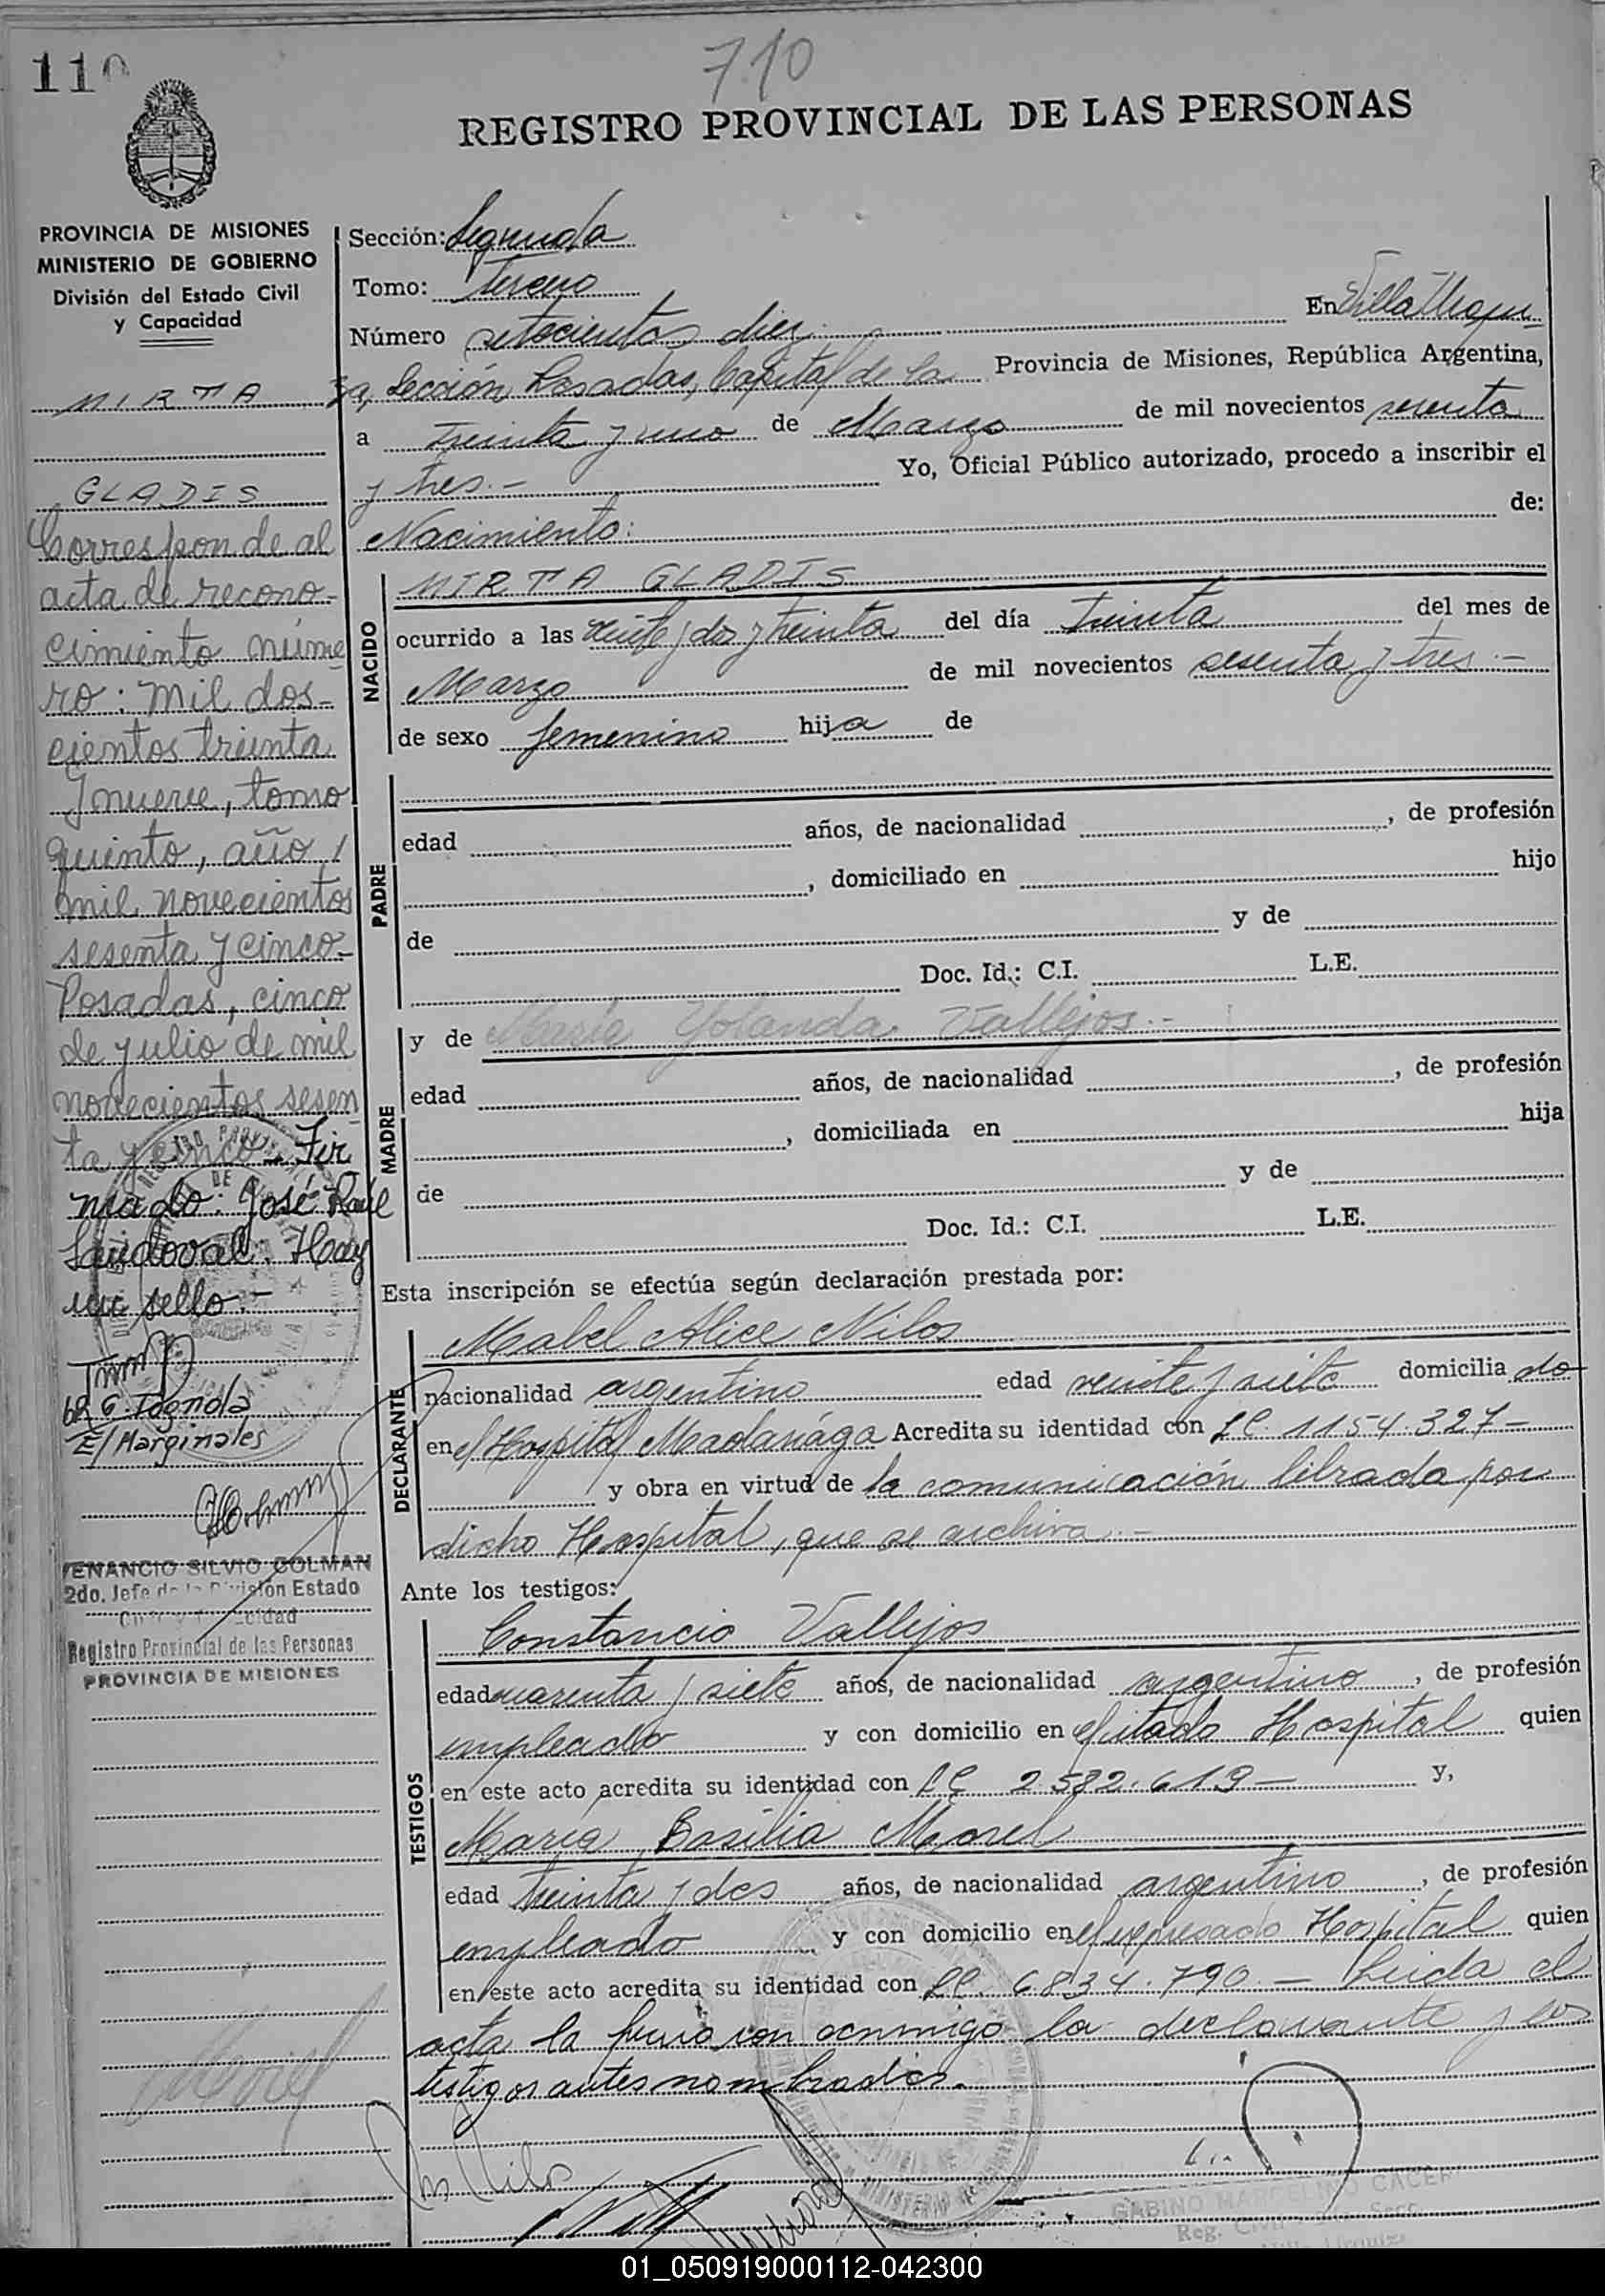 110
710
REGISTRO PROVINCIAL DE LAS PERSONAS
PROVINCIA DE MISIONES
MINISTERIO DE GOBIERNO
División del Estado Civil
y Capacidad
MIRTA
GLADIS
Corresponde al
acta de recono-
cimiento núme
ro: mil dos-
cientos treinta
y nueve, tomo
quinto, año
mil novecientos
sesenta y cinco-
Posadas, cinco
de julio de mil
novecientos sesen
ta y cinco - Fir
mado: José Raúl
Sandoval. Hay
un sello.-
E/ Marginales
VENANCIO SILVIO COLMAN
2do. Jefe de la División Estado
Registro Provincial de las Personas
PROVINCIA DE MISIONES
Sección: Segunda
Tomo: Tercero
Número setecientos diez En Villa Urqui
za, Sección Posadas, Capital de la Provincia de Misiones, República Argentina,
a treinta y uno de Marzo de mil novecientos sesenta
y tres.- Yo, Oficial Público autorizado, procedo a inscribir el
Nacimiento: de:
NACIDO
MIRTA GLADIS
ocurrido a las veinte y dos y treinta del día treinta del mes de
Marzo de mil novecientos sesenta y tres.-
de sexo femenino hija de
PADRE
edad años, de nacionalidad , de profesión
, domiciliado en hijo
de y de
Doc. Id.: C.I. L.E.
MADRE
y de María Yolanda Vallejos.-
edad años, de nacionalidad , de profesión
, domiciliada en hija
de y de
Doc. Id.: C.I. L.E.
Esta inscripción se efectúa según declaración prestada por:
DECLARANTE
Mabel Alice Nilos
nacionalidad argentino edad veinte y siete domiciliado
en el Hospital Madariága Acredita su identidad con LC. 1154.327-
y obra en virtud de la comunicación librada por
dicho Hospital, que se archiva.-
Ante los testigos:
TESTIGOS
Constancio Vallejos
edad cuarenta y siete años, de nacionalidad argentino , de profesión
empleado y con domicilio en el citado Hospital quien
en este acto acredita su identidad con LE 2.582.619- y,
María Basilia Morel
edad treinta y dos años, de nacionalidad argentino , de profesión
empleado y con domicilio en el expresado Hospital quien
en este acto acredita su identidad con LC. 6834.790.- Leida el
acta la firmaron conmigo la declarante y los
testigos antes nombrados.
GABINO MARCELINO CACER
01_050919000112-042300